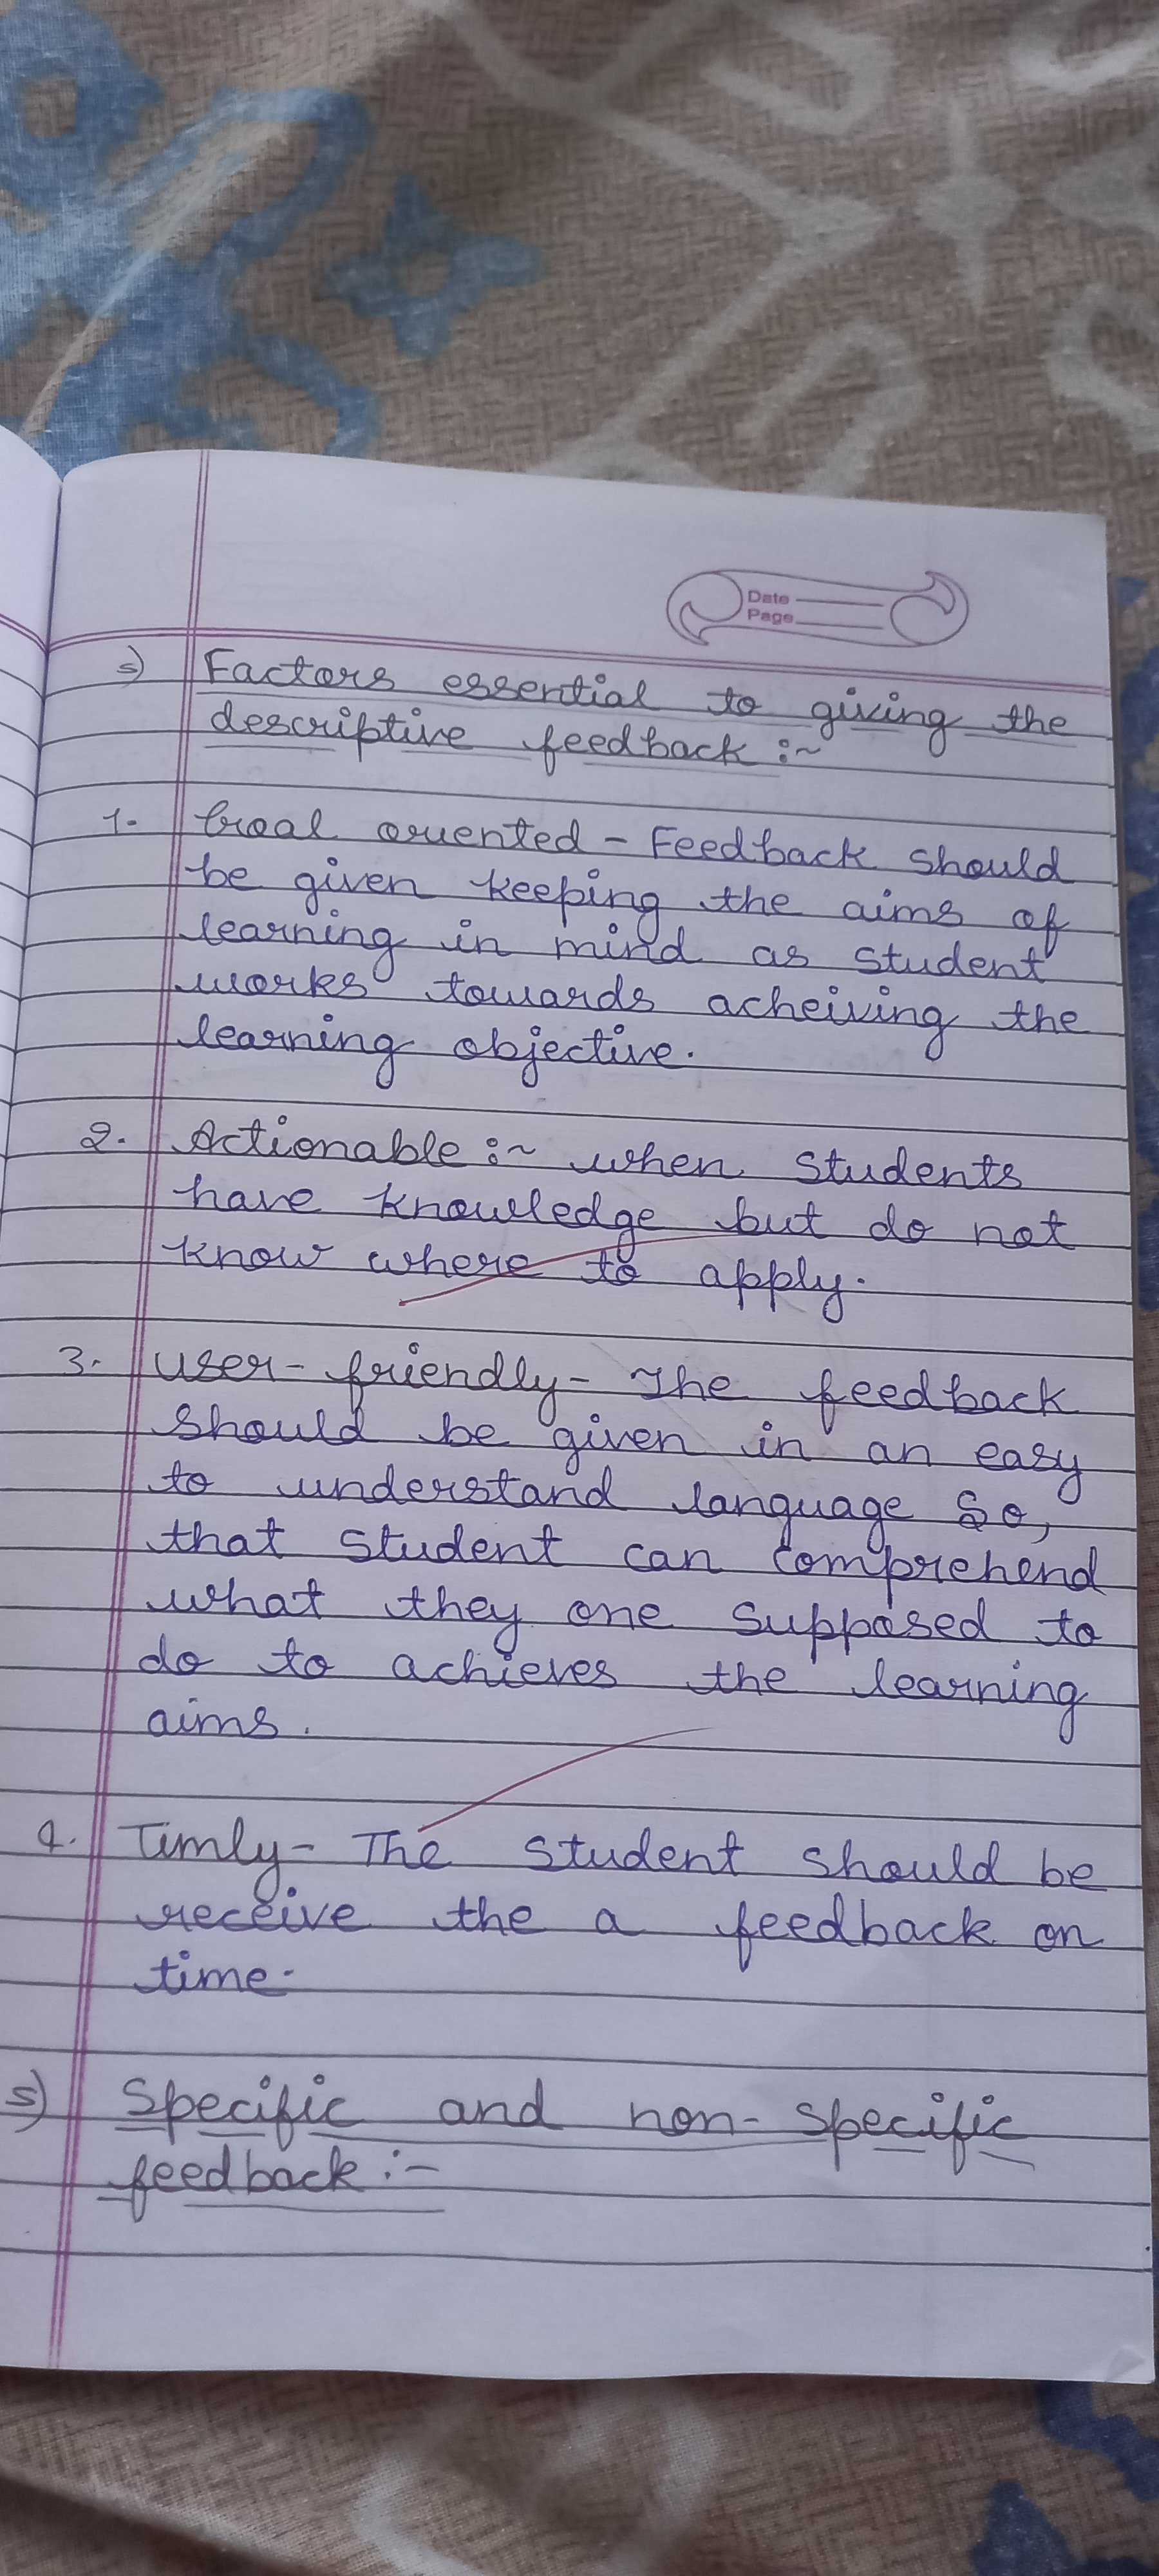 Date
Page
5) Factors essential to giving the
descriptive feedback :~
1. Goal oriented - Feedback should
be given keeping the aims of
learning in mind as student
works towards acheiving the
learning objective.
2. Actionable :~ when students
have knowledge but do not
know where to apply.
3. User-friendly - The feedback
should be given in an easy
to understand language So,
that student can comprehend
what they one supposed to
do to achieves the learning
aims.
4. Timly - The student should be
receive the a feedback on
time.
5) Specific and non-specific
feedback :-